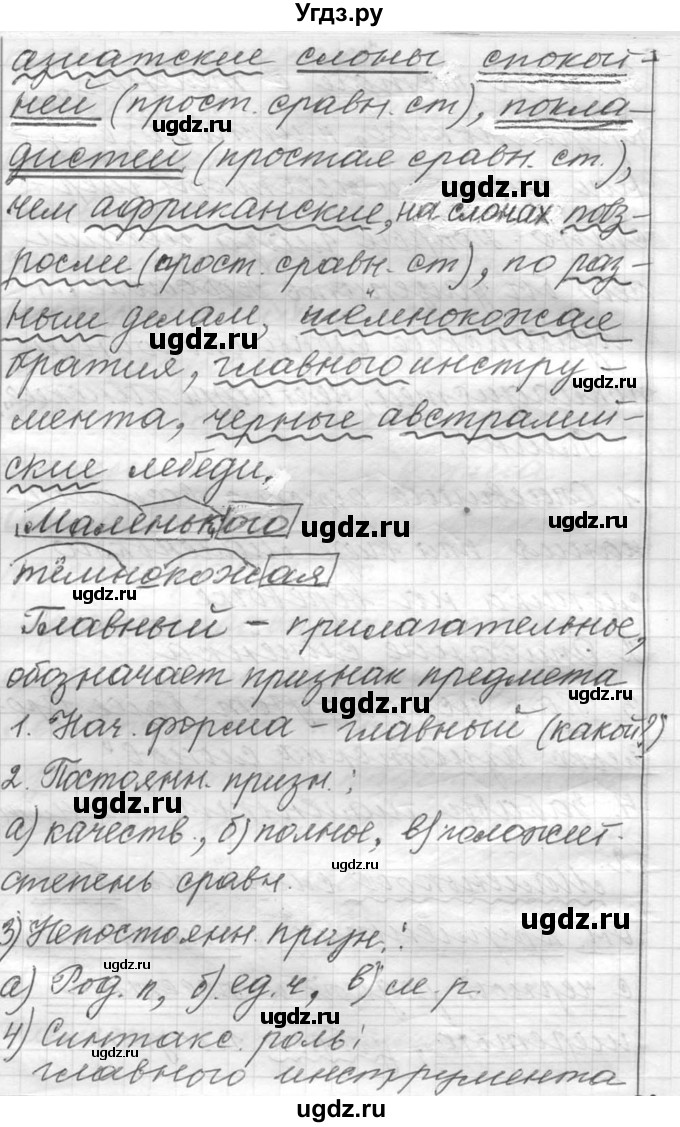 Угдз.ру
азиатские слоны спокой-
ней (прост. сравн. ст), покла-
ugdz.ru
дистей (простая сравн. ст.),
ugdz.ru
чем африканские, на слонах повз-
рослей (прост. сравн. ст), по раз-
ным делам, тёмнокожая
ugdz.ru
братия, главного инстру-
ugdz.ru
мента, черные австралий-
ские лебеди.
Маленького
ugdz.ru
ugdz.ru
тёмнокожая
ugdz.ru
Главный – прилагательное,
обозначает признак предмета
ugdz.ru
1. Нач. форма – главный (какой?)
2. Постоянн. призн.:
ugdz.ru
а) качеств., б) полное, в) положит.
ugdz.ru
степень сравн.
ugdz.ru
3) Непостоянн. призн.:
ugdz.ru
а) Род. п, б) ед. ч, в) м. р.
ugdz.ru
4) Синтакс. роль:
ugdz.ru
главного инструмента
ugdz.ru